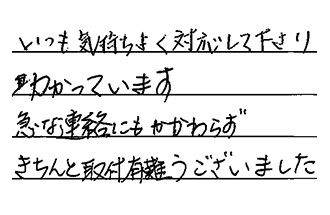 いつも気持ちよく対応して下さり
助かっています
急な連絡にもかかわらず
きちんと取付有難うございました